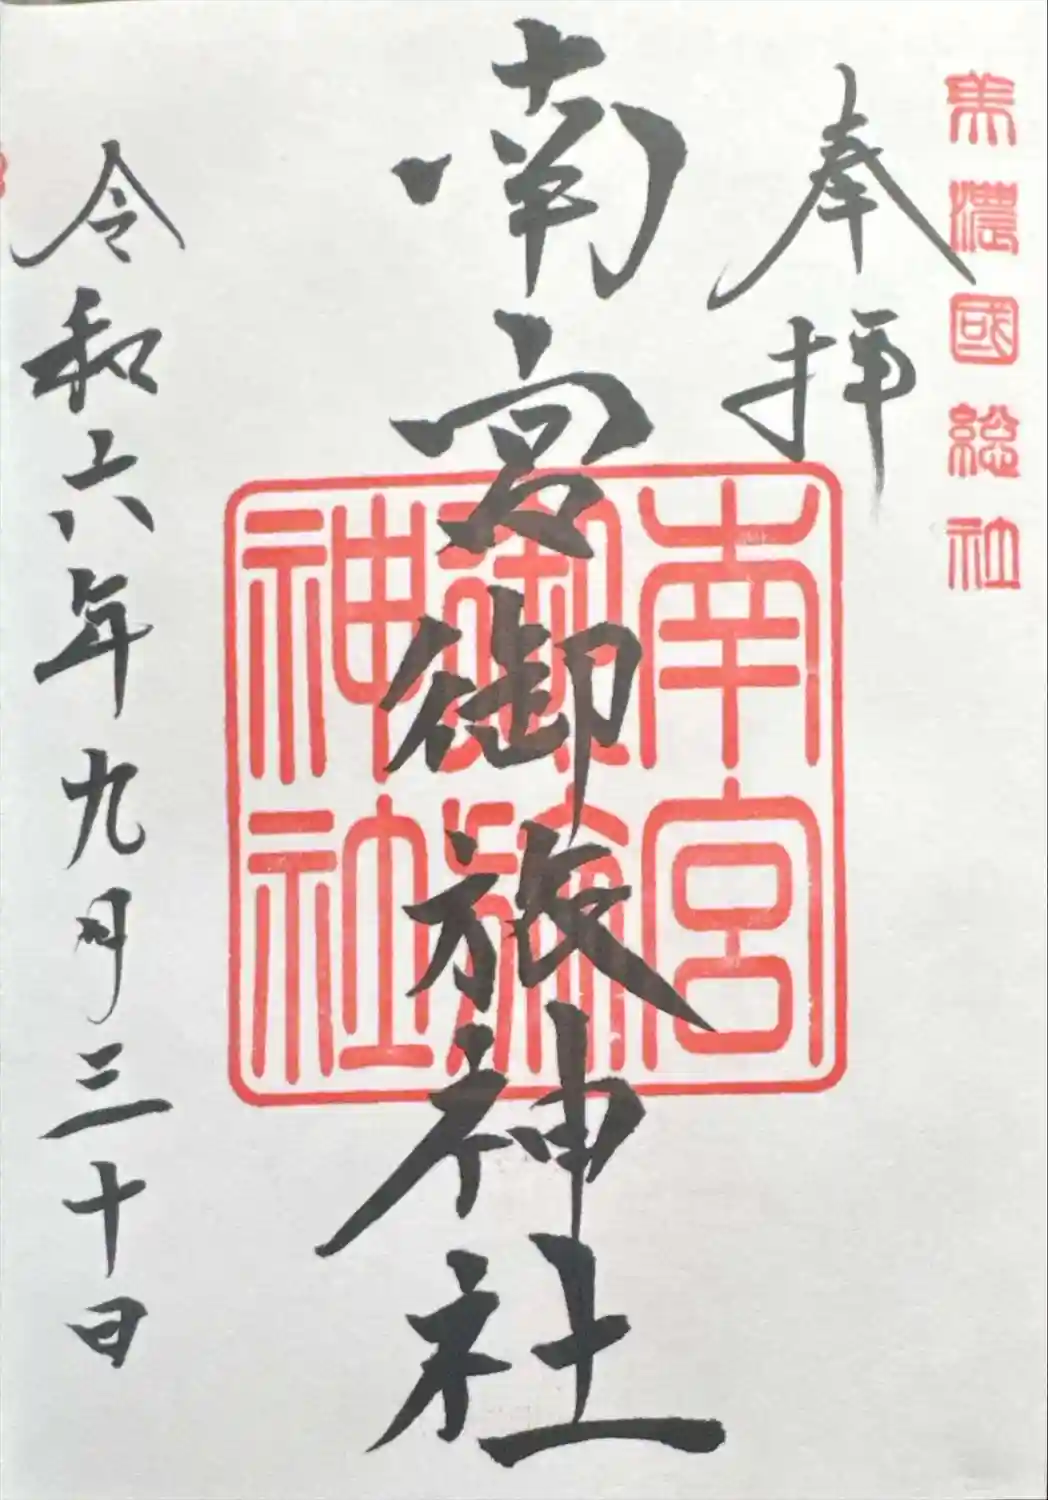 美濃國総社
奉拝
南宮御旅神社
南宮
御旅
神社
令和六年九月三十日